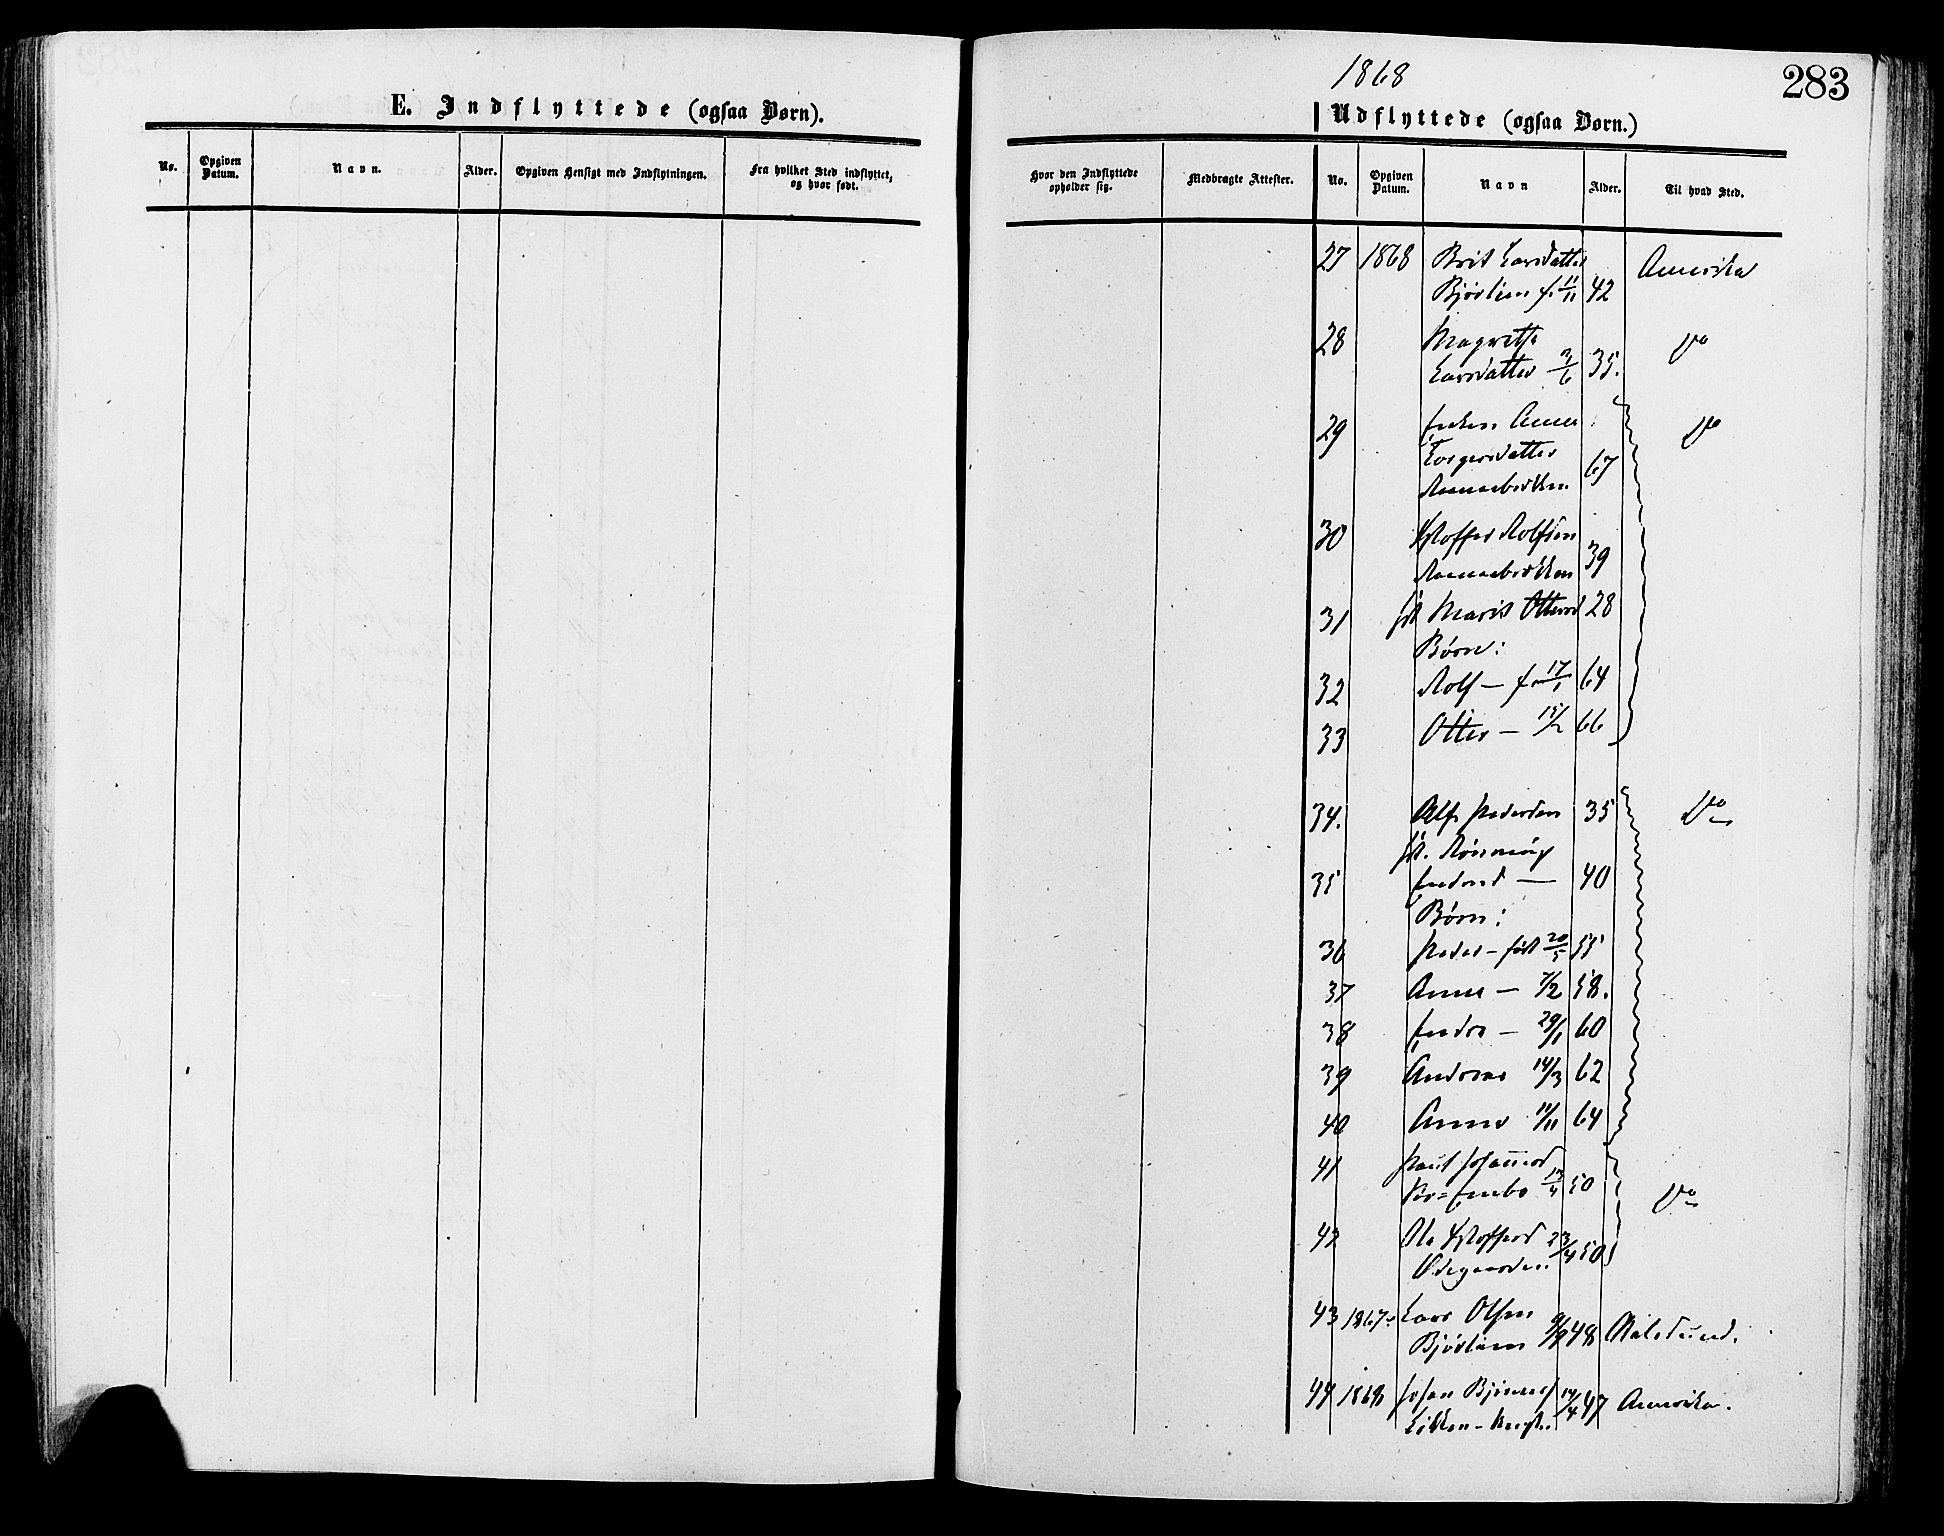 E. Indflyttede (ogsaa Børn).
No. Opgiven Datum. Navn. Alder. Opgiven Hensigt med Indflytningen. Fra hvilket Sted indflyttet, og hvor født.
1868
283
Udflyttede (ogsaa Børn.)
Hvor den Indflyttede opholder sig. Medbragte Attester. No. Opgiven Datum. Navn Alder. Til hvad Sted.
27 1868 Brit Larsdatter Amerika
Bjørlien f. 11/11 42
28 Magrethe Do
Larsdatter 3/6 35.
29 Enken Anne Do
Torgersdatter 67
30 Kstoffer Rolfsen
39
31 Marit Ottersd 28
Børn:
32 Rolf — f. 17/1 64
33 Otter — 15/2 66
34. Alf Pedersen 35 Do
Rønning
35 — 40
Børn:
36 Peder — født 20/5 55
37 Anne — 7/2 58.
38 Endre — 29/1 60
39 Andreas 14/3 62
40 Anne 14/11 64
41 Paul Johannesd
13/4 50 Do
42 Ole Kstoffersd 23/4 50
Ødegaarden.
43 1867 Lars Olsen
Bjørlien 9/9 48 Aalesund.
44 1868 Johan 14/4 47 Amerika.